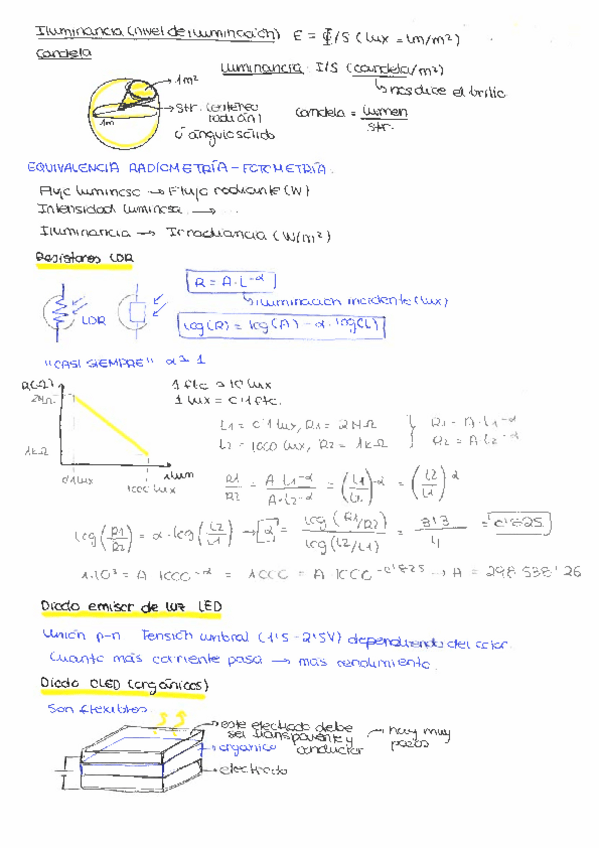 Iluminancia (nivel de iluminación) E = Φ/S (lux = lm/m²)
Candela
Luminancia I/S (candela/m²)
↳ nos dice el brillo
1m²
str. (estereo
radián)
ó ángulo sólido
1m
candela = lumen / str.
EQUIVALENCIA RADIOMETRÍA - FOTOMETRÍA.
Flujo luminoso → Flujo radiante (W)
Intensidad luminosa → ...
Iluminancia → Irradiancia (W/m²)
Resistores LDR
LDR
R = A·L^-α
↳ iluminación incidente (lux)
log(R) = log(A) - α·log(L)
"CASI SIEMPRE" α > 1
R(Ω)
2MΩ
1kΩ
0'1 lux
1000 lux
ilum
1 ftc = 10 lux
1 lux = 0'1 ftc.
L1 = 0'1 lux, R1 = 2MΩ } R1 = A·L1^-α
L2 = 1000 lux, R2 = 1kΩ } R2 = A L2^-α
R1/R2 = A L1^-α / A·L2^-α = (L1/L2)^-α = (L2/L1)^α
log(R1/R2) = α·log(L2/L1) → α = log(R1/R2) / log(L2/L1) = 3'3/4 = 0'825
1·10³ = A 1000^-α = 1000 = A 1000^-0'825 → A = 298538'26
Diodo emisor de luz LED
Unión p-n Tensión umbral (1'5 - 2'5V) dependiendo del color.
Cuanto más corriente pasa → más rendimiento.
Diodo OLED (orgánicos)
Son flexibles
este electrodo debe
ser transparente y
conductor
→ hay muy
pocos
orgánico
electrodo